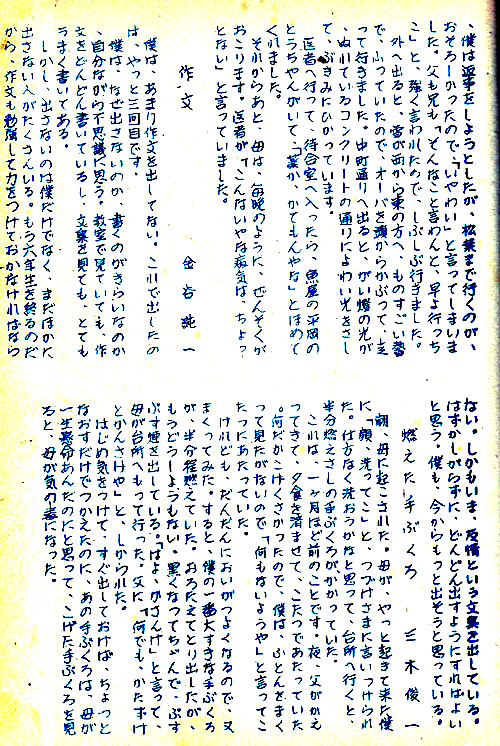 、僕は返事をしようとしたが、松葉まで行くのが、
おそろーかったので、「いやわい」と言ってしまいま
した。父も兄も「そんなこと言わんと、早よ行っち
こ」と、強く言われたので、しぶしぶ行きました。
外へ出ると、雪が西から東の方へ、ものすごい勢
で、ふっていたので、オーバを頭からかぶって、走
って行きました。中町通りへ出ると、がい燈の光が
、ぬれているコンクリートの通りによわい光をさし
て、ぶきみにひかっています。
医者へ行って、待合室へ入ったら、魚屋の平岡の
とうちゃんがいて、「薬か、かてもんやな」とほめて
くれました。
それからあと、母は、毎晩のように、ぜんそくが
おこります。医者が「こんないやな病気は、ちょっ
とない」と言っていました。
作文
金谷純一
僕は、あまり作文を出してない。これで出したの
は、やっと三回目です。
僕は、なぜ出さないのか、書くのがきらいなのか
、自分ながら不思議に思う。教室で見ていても、作
文をどんどん書いているし、文集を見ても、とても
うまく書いてある。
しかし、出さないのは僕だけでなく、まだほかに
出さない人がたくさんいる。もう六年生を終るのだ
から、作文も勉強して力をつけておかなければなら
ない。しかもいま、友情という文集を出している。
はずかしがらずに、どんどん出すようにすればよい
と思う。僕も、今からもっと出そうと思っている。
燃えた手ぶくろ
三木俊一
朝、母に起こされた。母が、やっと起きて来た僕
に、「顔、洗ってこ」と、つづけさまに言いつけられ
た。仕方なく洗おうかなと思って、台所へ行くと、
半分燃えさしの手ぶくろがかかっていた。
これは、一ヶ月ほど前のことです。夜、父がかえ
ってきて、夕食を済ませて、こたつであたっていた
。何だかこげくさかったので、僕は、ふとんをまく
って見たがないので「何もないようや」と言ってこ
たつにあたっていた。
けれども、だんだんにおいがつよくなるので、又
まくってみた。すると、僕の一番大すきな手ぶくろ
が、半分程燃えていた。おろたえてとり出したが、
もうどうしようもない。黒くなってちゞんで、ぷす
ぷす煙を出している。「はよ、かさんけ」と言って、
母が台所へもって行った。父に「何でも、かたずけ
とかんさけや」と、しかられた。
はじめ気をつけて、すぐ出しておけば、ちょっと
なおすだけでつかえたのに、あの手ぶくろは、母が
一生懸命あんだのにと思って、こげた手ぶくろを見
ると、母が気の毒になった。